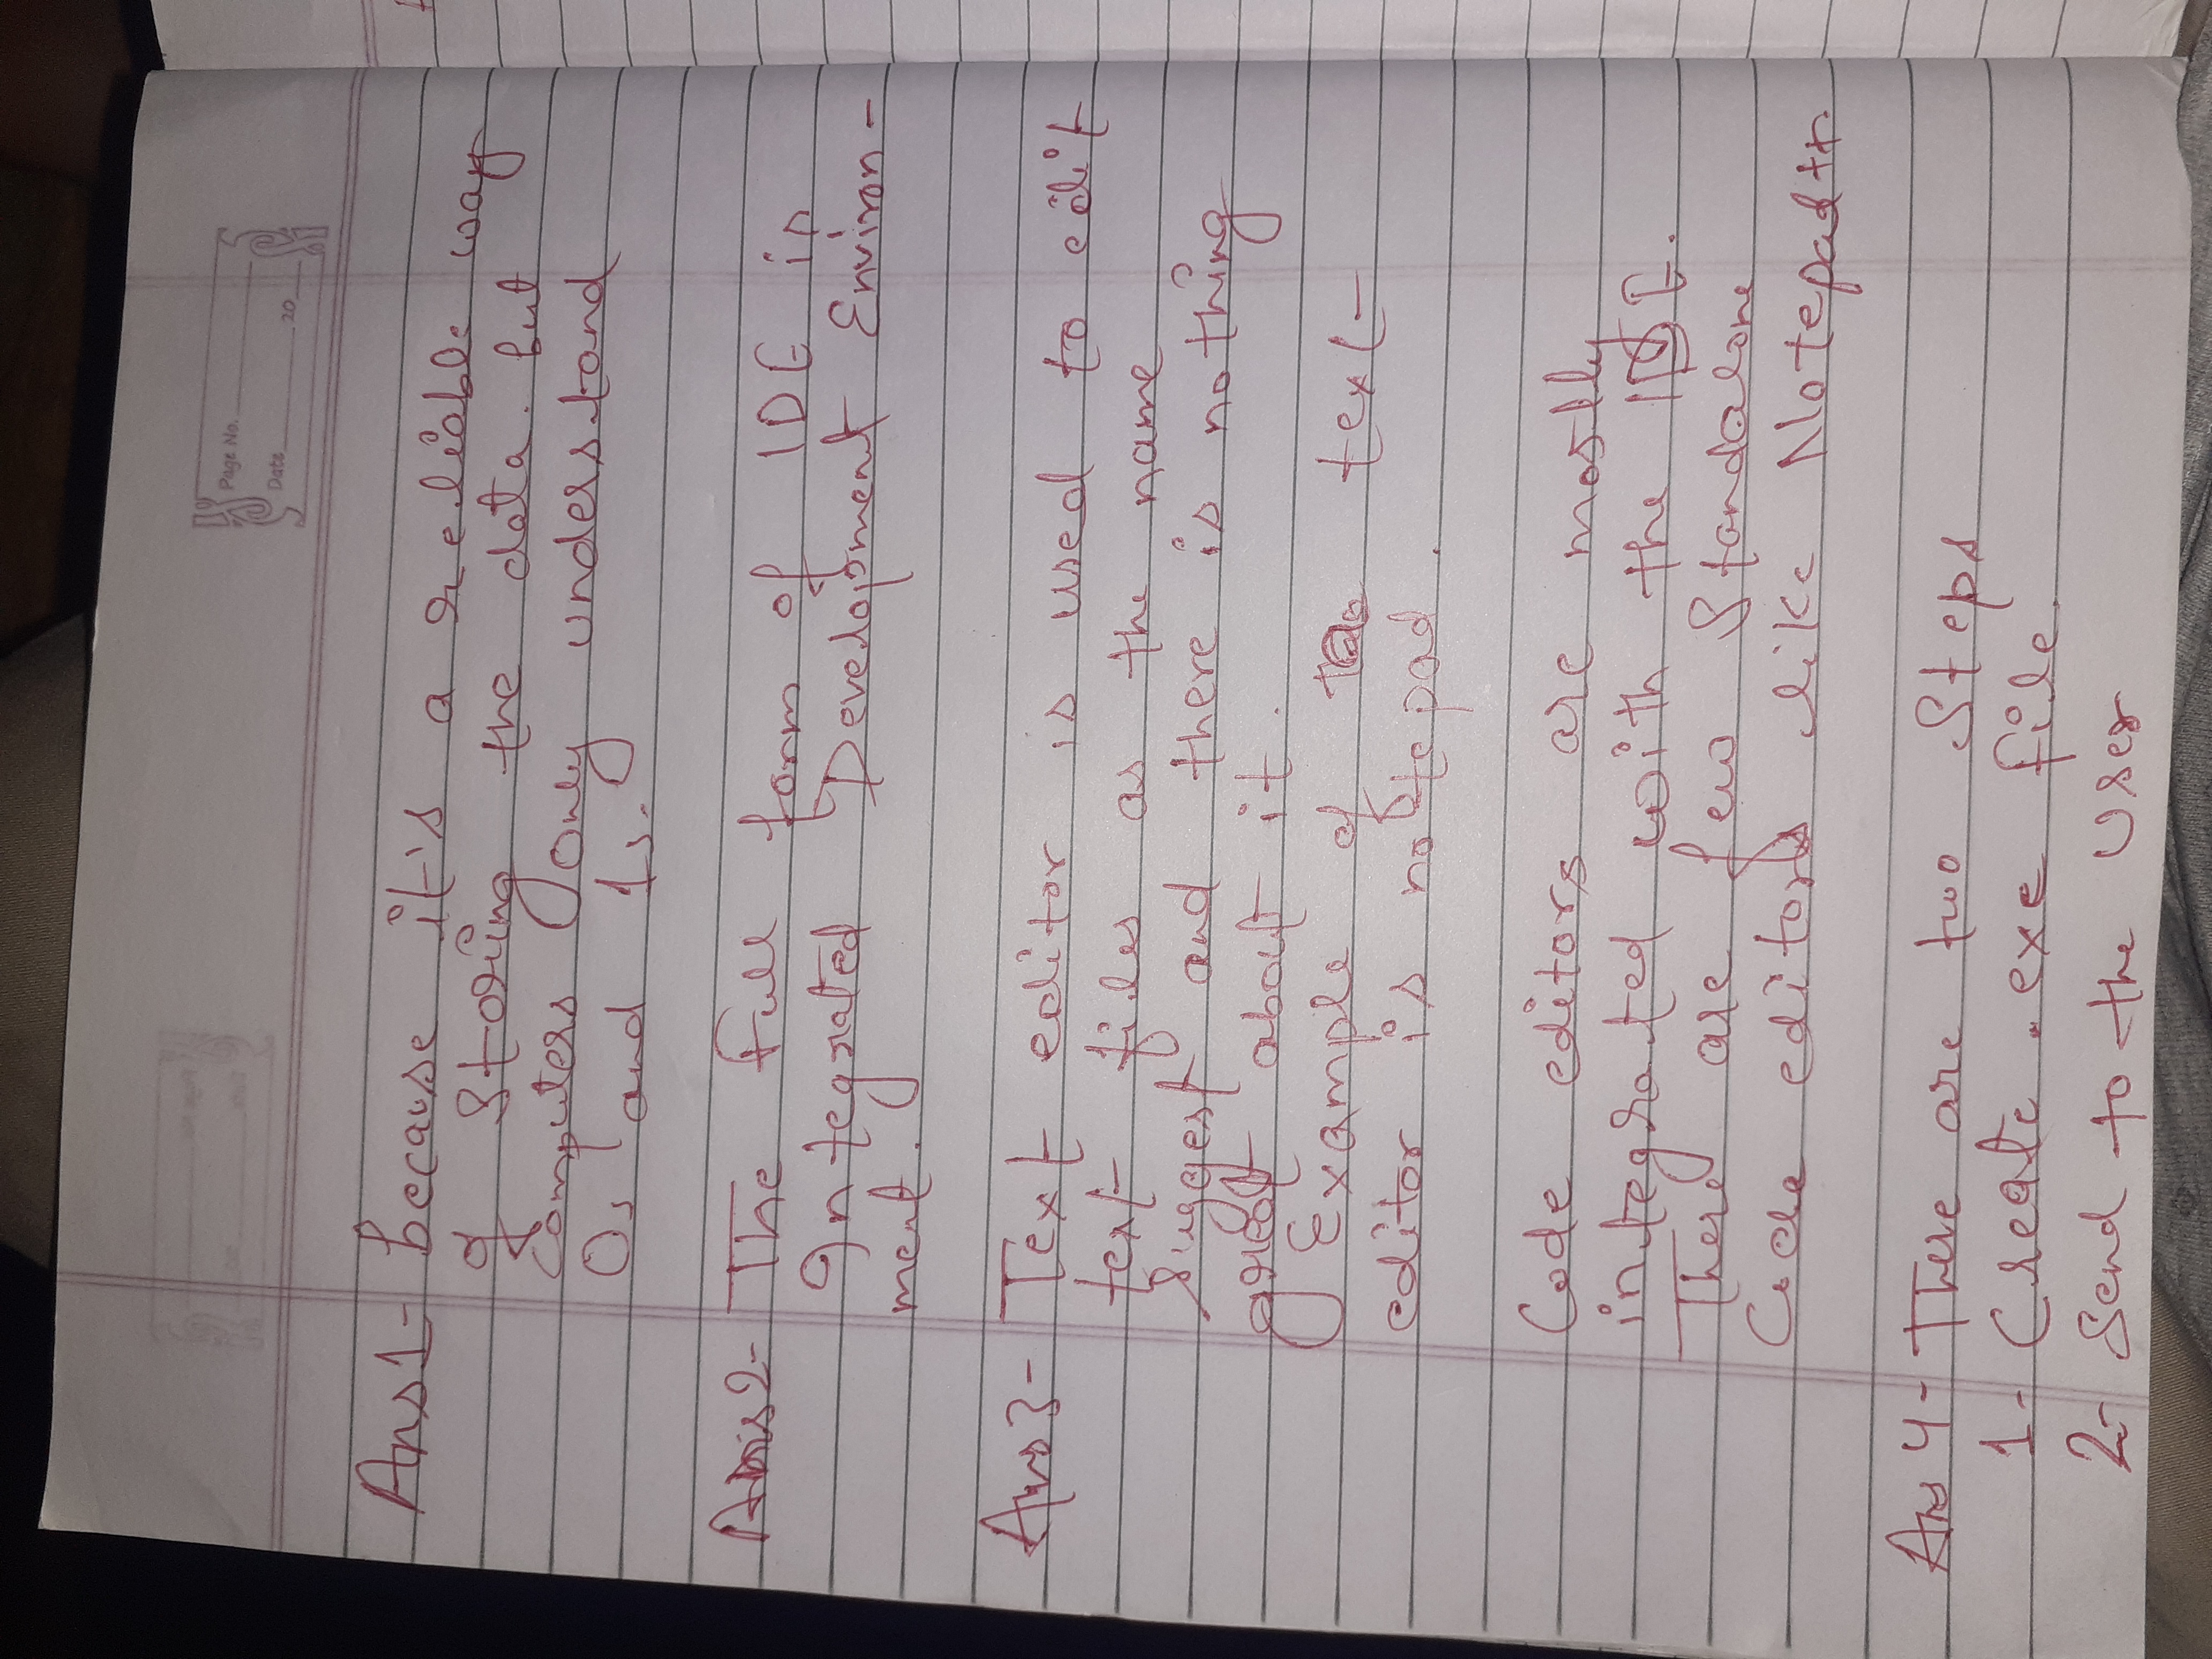 Page No.
Date 20
Ans1- Because it's a reliable way
of Storing the data. But
Computers only understand
0s and 1s.
Ans2- The full form of IDE is
Integrated Development Environ-
ment.
Ans3- Text editor is used to edit
text files as the name
Suggest and there is nothing
great about it.
Example of text
editor is notepad.
Code editors are mostly
integrated with the IDE.
There are few Standalone
Code editors like Notepad++.
Ans 4- There are two Steps
1- Create .exe file.
2- Send to the User